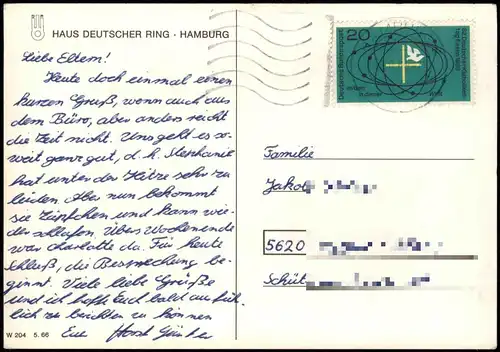 HAUS DEUTSCHER RING · HAMBURG
Liebe Eltern!
Heute doch einmal einen
kurzen Gruß, wenn auch aus
dem Büro, aber anders reicht
die Zeit nicht. Uns geht es so-
weit ganz gut, d. h. Stephanie
hat unter der Hitze sehr zu
leiden. Aber nun bekommt
sie Zäpfchen und kann wie-
der schlafen. Übers Wochenende
war Charlotte da. Für heute
Schluß, die Besprechung be-
ginnt. Viele liebe Grüße
und ich hoffe Euch bald ausführ-
lich zu berichten zu können
Eure Horst Günter
W 204 5.66
20
Deutsche Bundespost
1968
Familie
Jakob
5620
Schüt